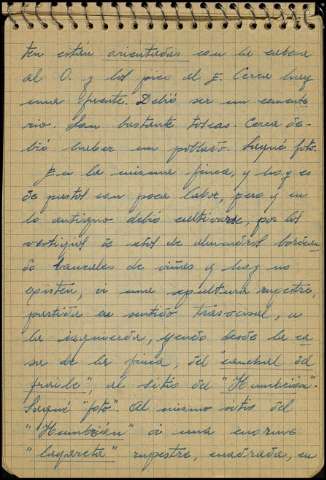 ten están orientadas con la cabeza
al O. y los pies al E. Cerca hay
una fuente. Debió ser un cemente
rio. Son bastante toscas. Cerca de-
bió haber un poblado. Saqué foto.
En la misma finca, y hoy es
de pastos con poca labor, pero y en
lo antiguo debió cultivarse, por los
vestigios de
de bancales de viñas y hoy no
existen, vi una sepultura rupestre,
partida en sentido trasversal, a
la izquierda, yendo desde la ca
sa de la finca, del "canchal del
fraile" al sitio del "Humbrión".
Saqué "foto". Al mismo sitio del
"Humbrión" vi una enorme
"lagareta" rupestre, cuadrada, en